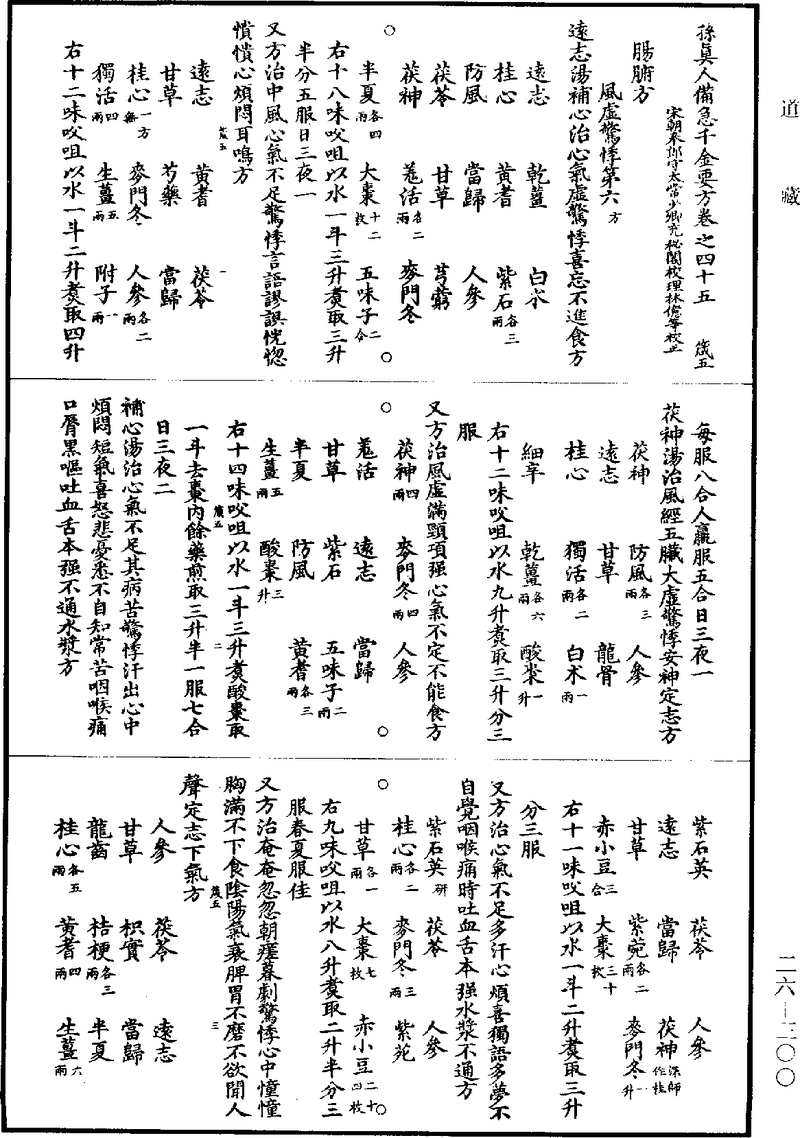 道藏
二六—三〇〇
孫真人備急千金要方卷之四十五 歲五
宋朝奉郎守太常少卿充秘閣校理林億等校正
腸腑方
風虛驚悸第六方
遠志湯補心治心氣虛驚悸喜忘不進食方
遠志 乾薑 白朮
桂心 黃耆 紫石各三兩
防風 當歸 人參
茯苓 甘草 芎藭
茯神 羗活各二兩 麥門冬
半夏各四兩 大棗十二枚 五味子二合
右十八味㕮咀以水一斗三升煑取三升
半分五服日三夜一
又方治中風心氣不足驚悸言語謬誤恍惚
憒憒心煩悶耳鳴方
遠志 黃耆 茯苓
甘草 芍藥 當歸
桂心一方無 麥門冬 人參各二兩
獨活四兩 生薑五兩 附子一兩
右十二味㕮咀以水一斗二升煑取四升
每服八合人羸服五合日三夜一
茯神湯治風經五臟大虛驚悸安神定志方
茯神 防風各三兩 人參
遠志 甘草 龍骨
桂心 獨活各二兩 白朮一兩
細辛 乾薑各六兩 酸棗一升
右十二味㕮咀以水九升煑取三升分三
服
又方治風虛滿頸項强心氣不定不能食方
茯神四兩 麥門冬四兩 人參
羗活 遠志 當歸
甘草 紫石 五味子二兩
半夏 防風 黃耆各三兩
生薑五兩 酸棗三升
右十四味㕮咀以水一斗三升煑酸棗取
一斗去棗內餘藥煎取三升半一服七合
日三夜二
補心湯治心氣不足其病苦驚悸汗出心中
煩悶短氣喜怒悲憂悉不自知常苦咽喉痛
口脣黑嘔吐血舌本强不通水漿方
紫石英 茯苓 人參
遠志 當歸 茯神深師作桂
甘草 紫菀各二兩 麥門冬一升
赤小豆三合 大棗三十枚
右十一味㕮咀以水一斗二升煑取三升
分三服
又方治心氣不足多汗心煩喜獨語多夢不
自覺咽喉痛時吐血舌本强水漿不通方
紫石英研 茯苓 人參
桂心各二兩 麥門冬三兩 紫菀
甘草各一兩 大棗七枚 赤小豆二十四枚
右九味㕮咀以水八升煑取二升半分三
服春夏服佳
又方治奄奄忽忽朝瘥暮劇驚悸心中憧憧
胸滿不下食陰陽氣衰脾胃不磨不欲聞人
聲定志下氣方
人參 茯苓 遠志
甘草 枳實 當歸
龍齒 桔梗各三兩 半夏
桂心各五兩 黃耆四兩 生薑六兩